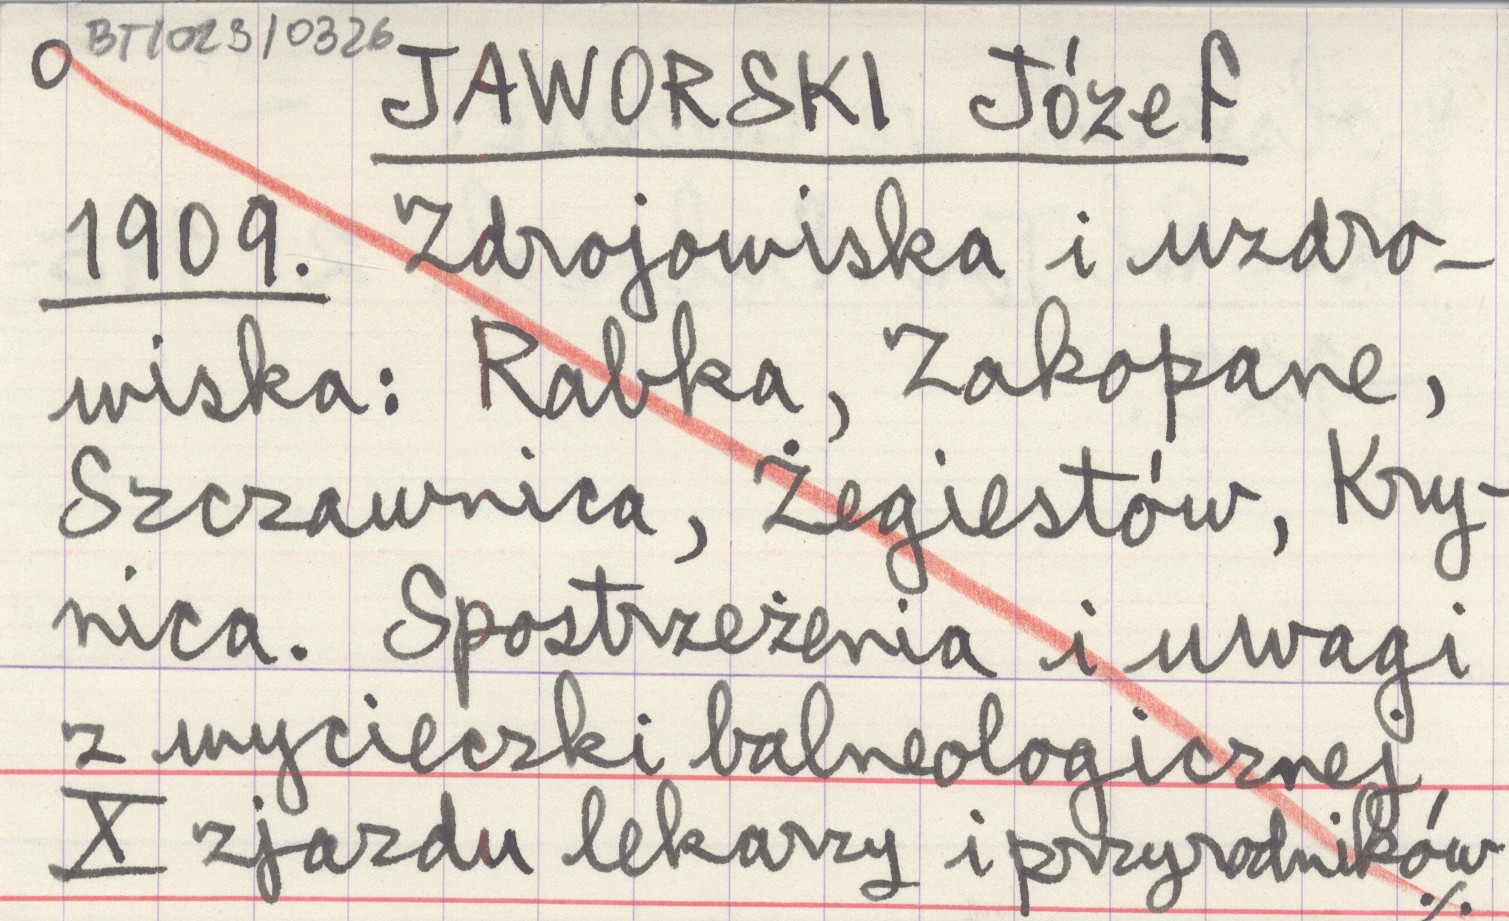 O BT/023/0326
JAWORSKI Józef
1909. Zdrojowiska i uzdro-
wiska: Rabka, Zakopane,
Szczawnica, Żegiestów, Kry-
nica. Spostrzeżenia i uwagi
z wycieczki balneologicznej
X zjazdu lekarzy i przyrodników
./.